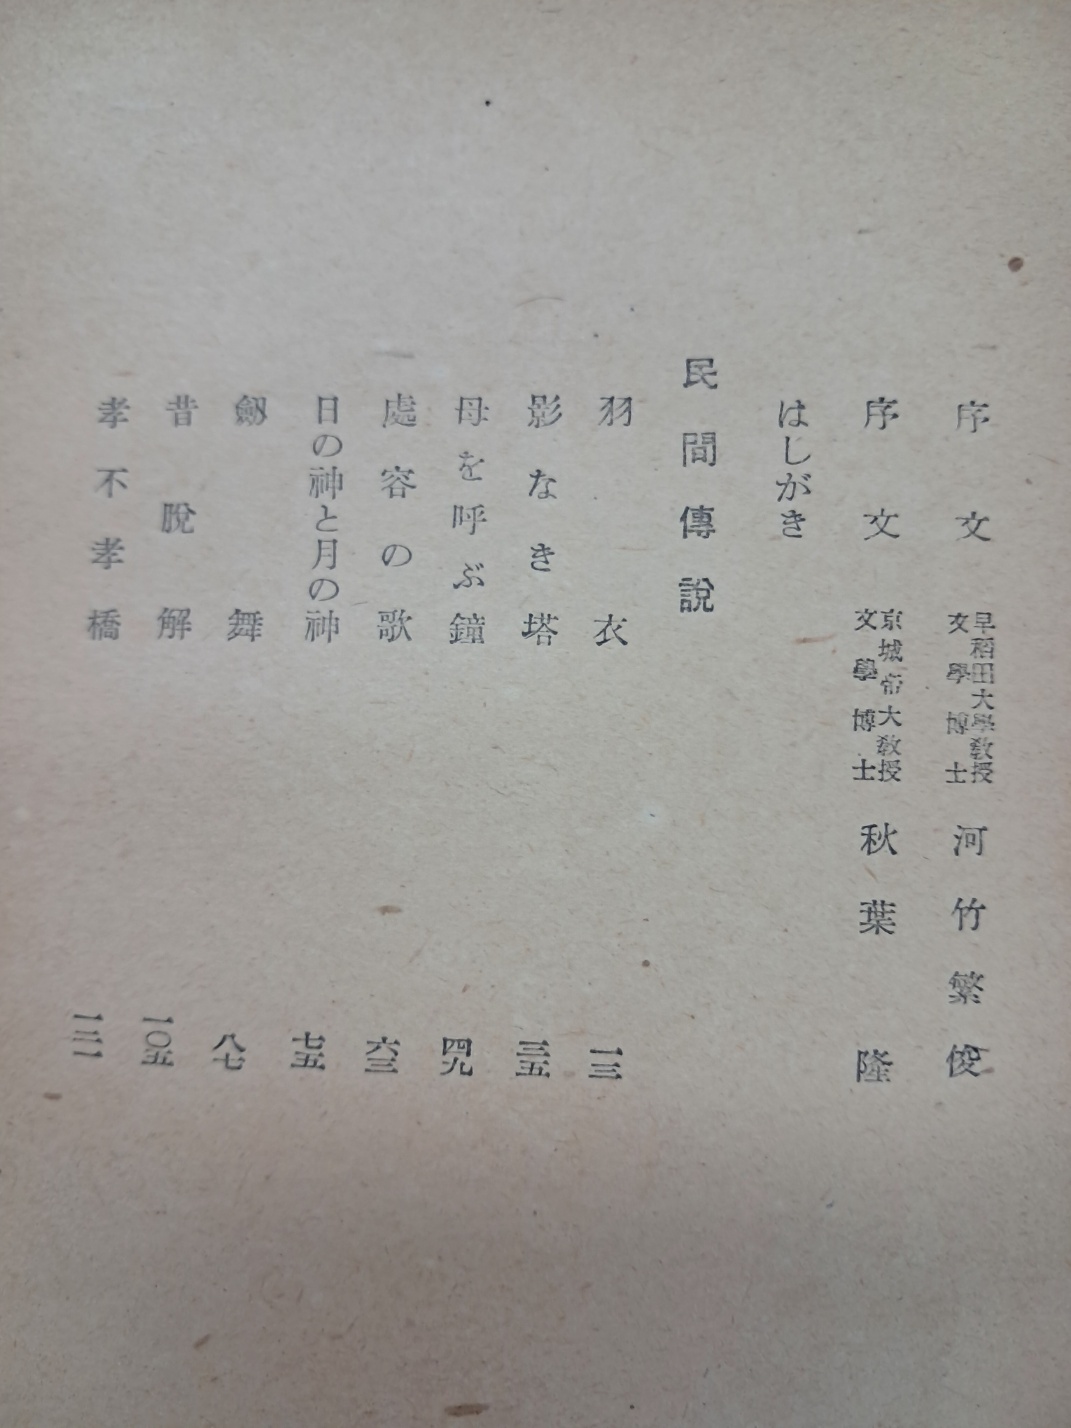 序文 早稻田大學敎授 文學博士 河竹繁俊
序文 京城帝大敎授 文學博士 秋葉隆
はしがき
民間傳說
羽衣 一三
影なき塔 三五
母を呼ぶ鐘 四九
處容の歌 六三
日の神と月の神 七五
劒舞 八七
昔脫解 一〇五
孝不孝橋 一二一